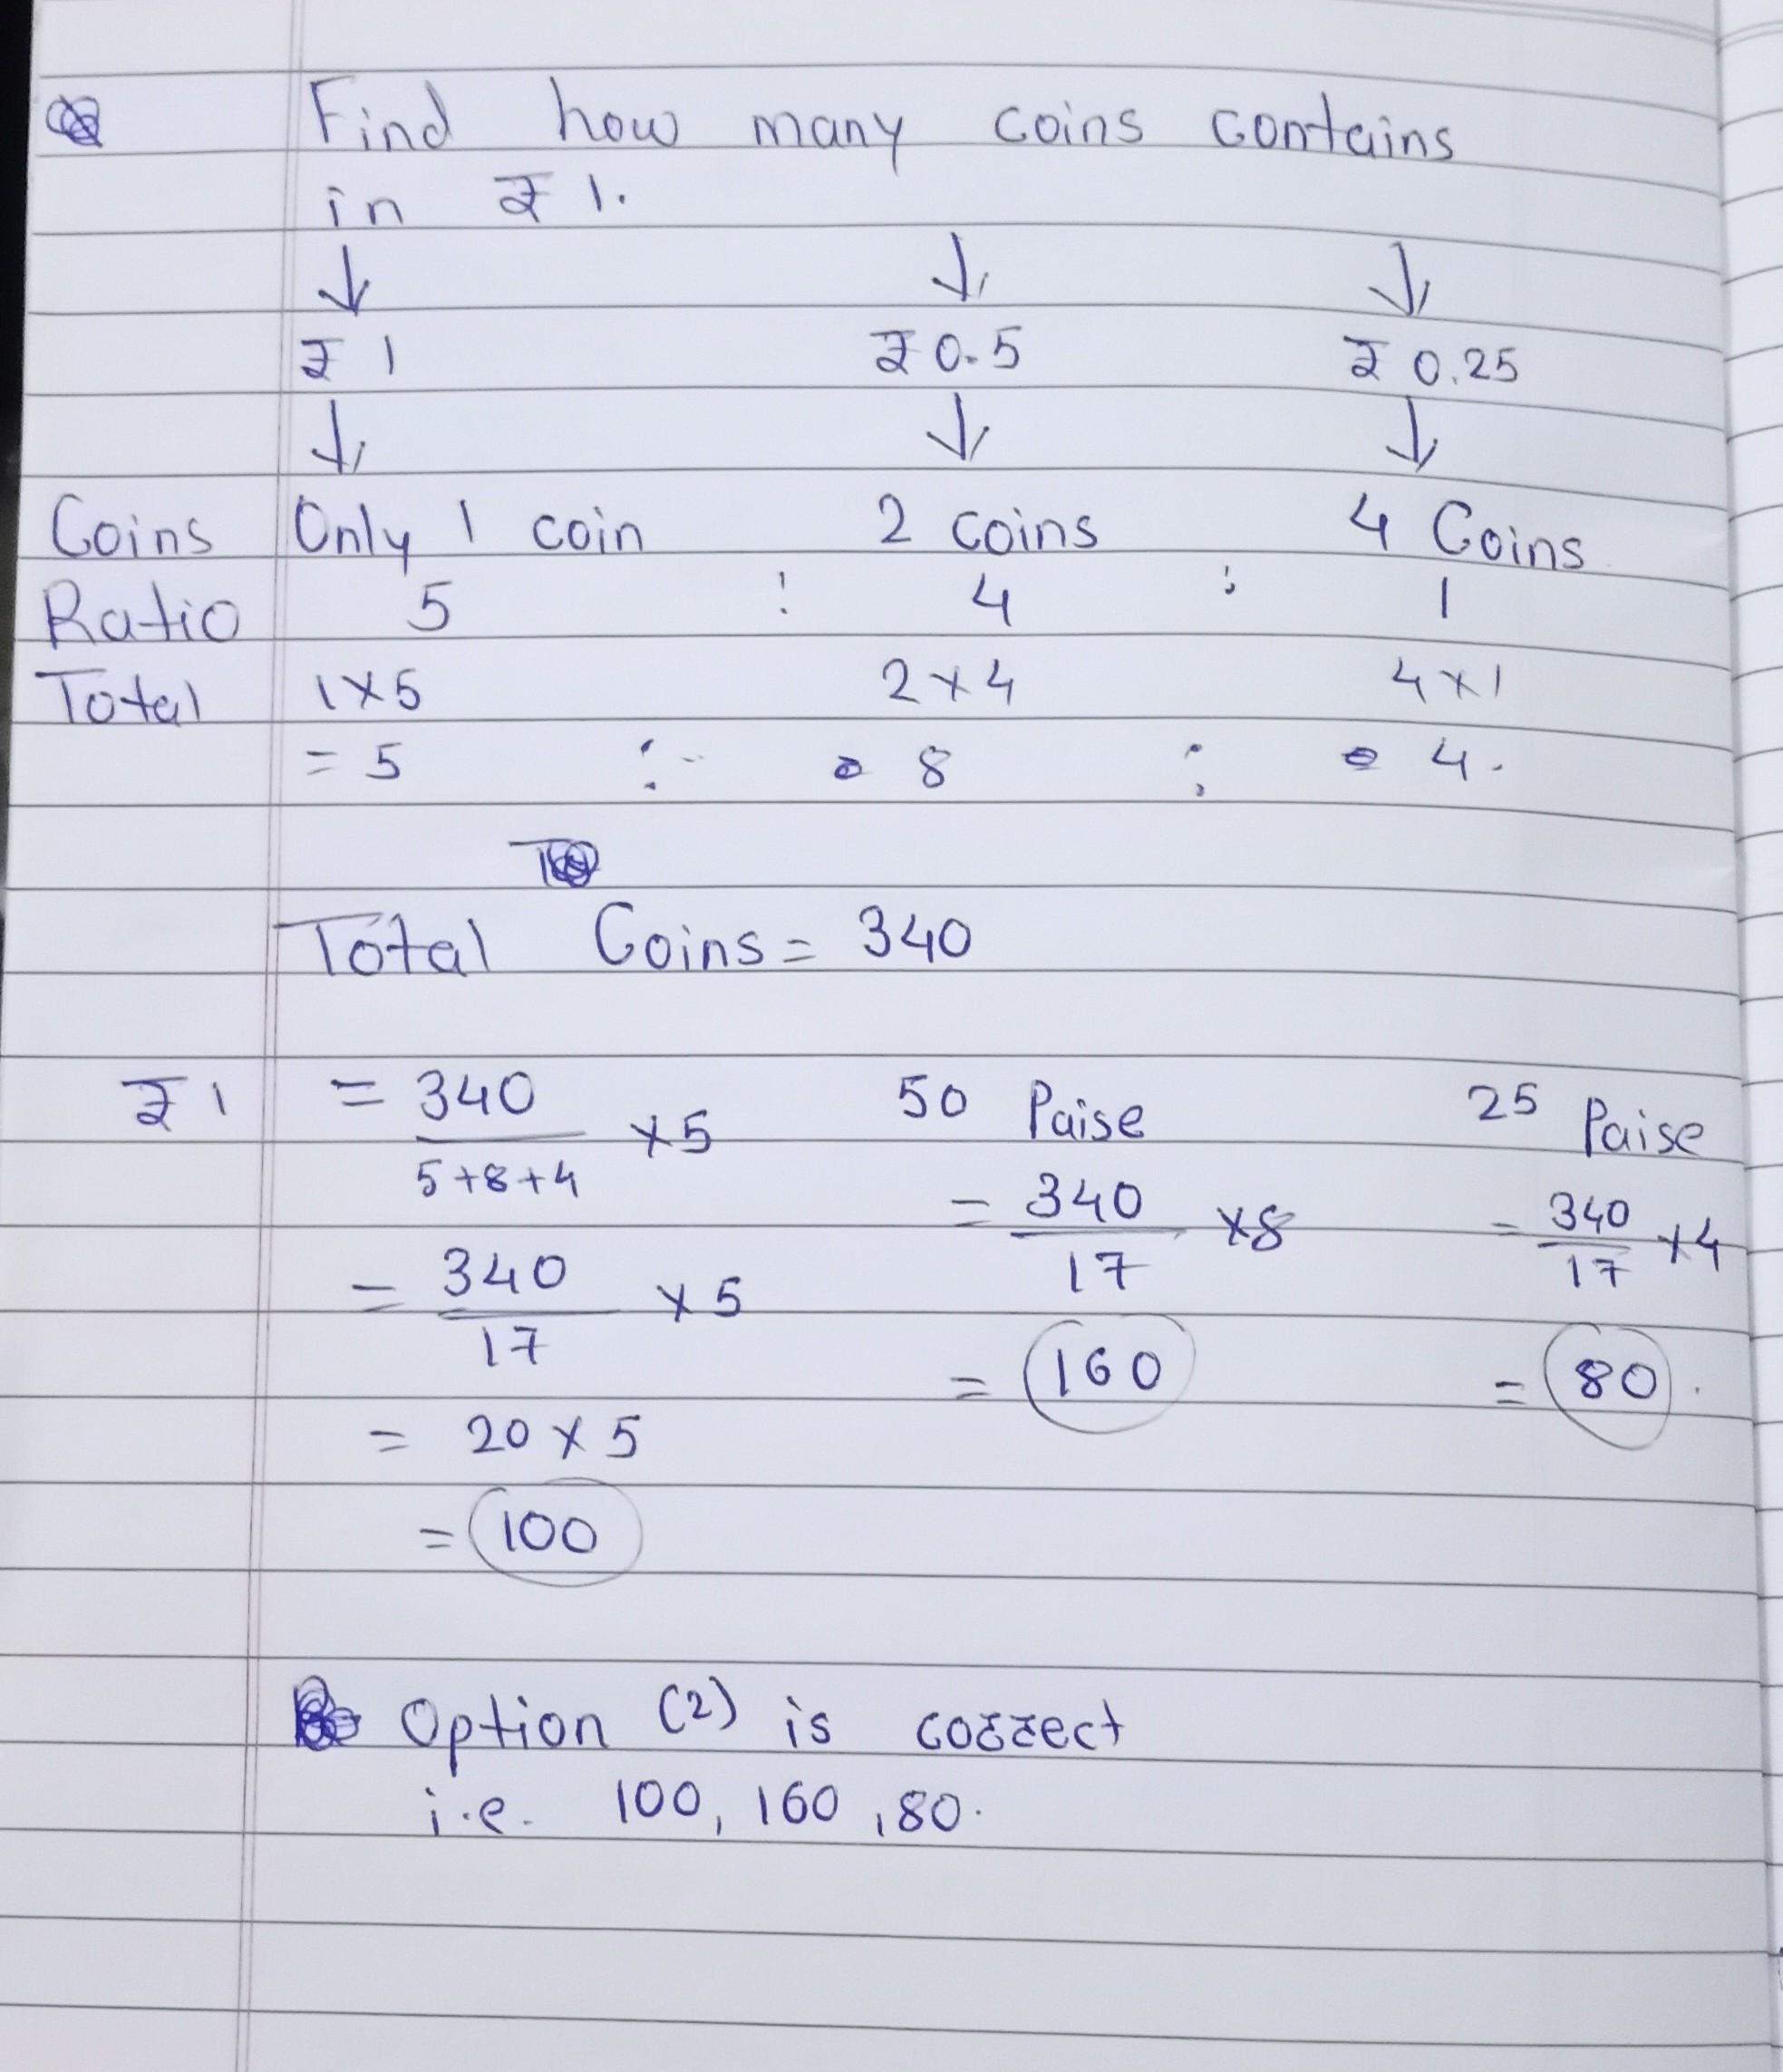 Find how many coins contains
in ₹ 1.
↓ ↓ ↓
₹ 1 ₹ 0.5 ₹ 0.25
↓ ↓ ↓
Coins Only 1 coin 2 coins 4 Coins
Ratio 5 : 4 : 1
Total 1×5 2×4 4×1
= 5 : 8 : 4.
Total Coins = 340
₹ 1 = 340/5+8+4 ×5 50 Paise 25 Paise
= 340/17 ×5 = 340/17 ×8 = 340/17 ×4
= 20 × 5 = 160 = 80.
= 100
Option (2) is correct
i.e. 100, 160, 80.